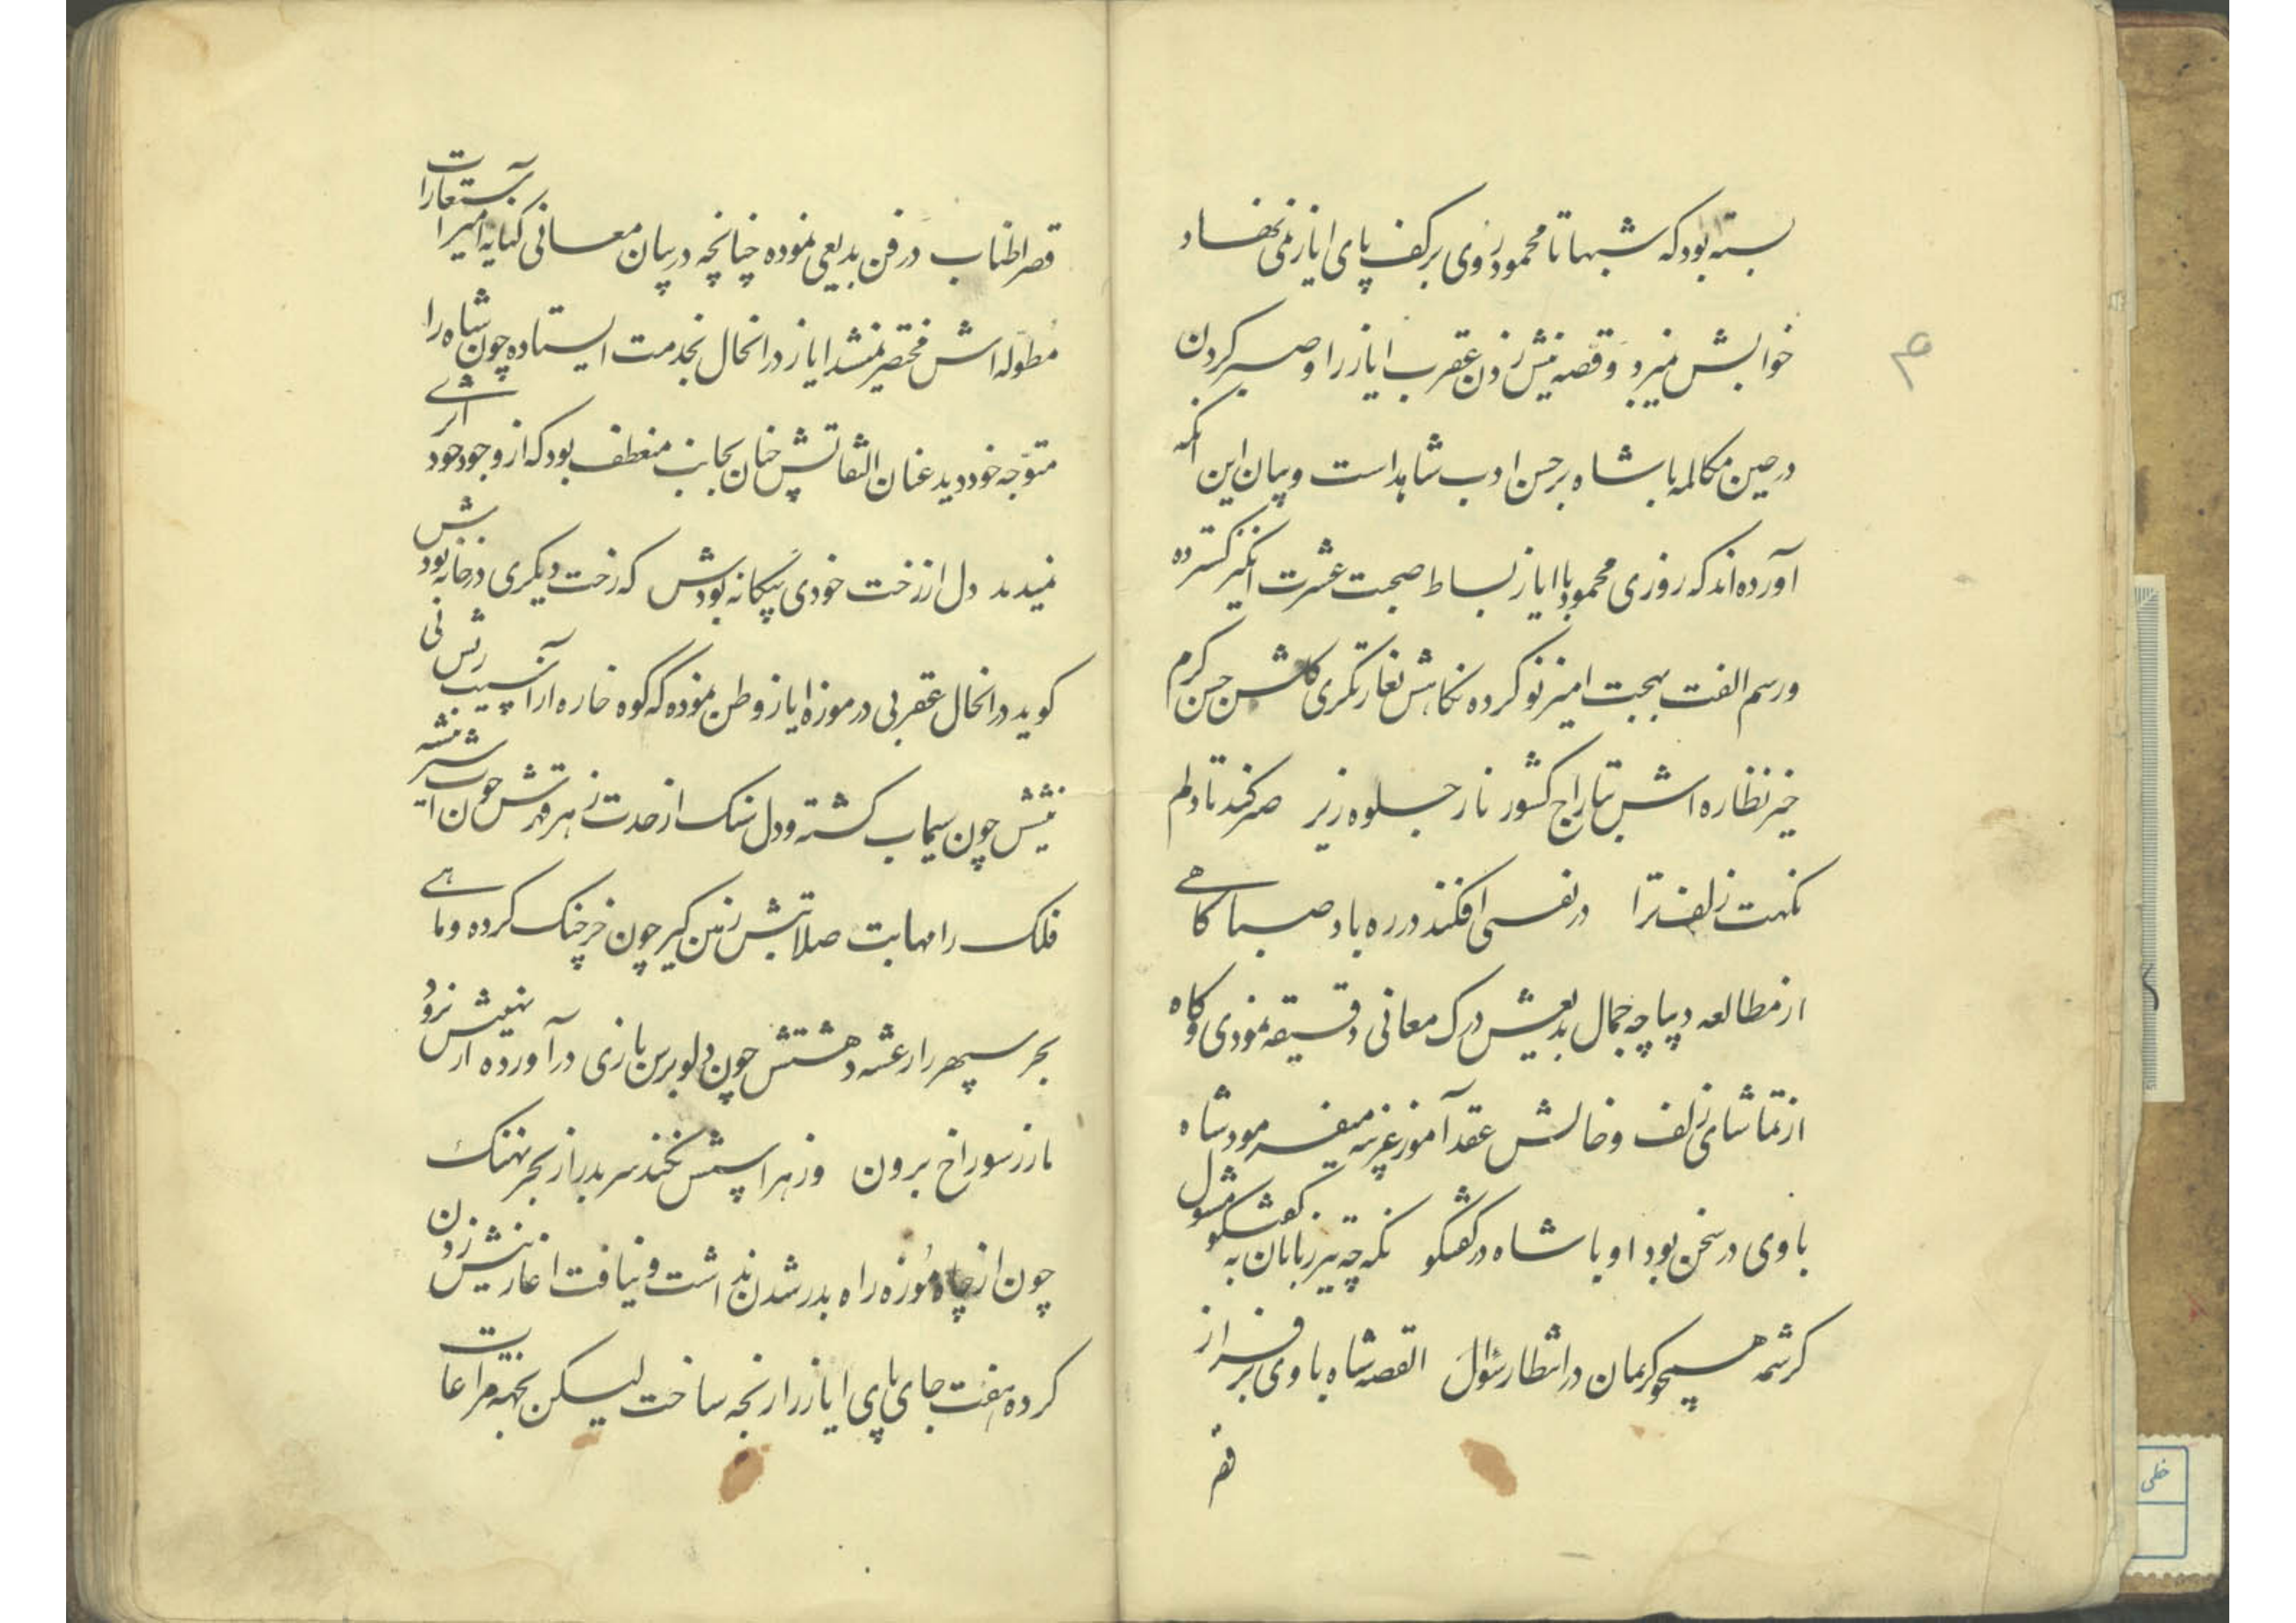 بسته بود که شبها تا محمود روی بر کف پای ایاز نمی نهاد
خوابش نمیبرد و قصه نیش زدن عقرب ایاز را و صبر کردن
در حین مکالمه با شاه بر حسن ادب شاهد است و بیان این آنکه
آورده اند که روزی محمود با ایاز بساط صحبت عشرت انگیز گسترده
و رسم الفت بهجت امیز نو کرده نگاهش بغارتگری گلشن حسن گرم
خیز نظاره اش بتاراج کشور ناز جلوه ریز صر کند تا دلم
نکهت زلف ترا در نفسی افکند در ره باد صبا گاهی
از مطالعه دیباچه جمال بدیعش درک معانی دقیقه نمودی و گاه
از تماشای زلف و خالش عقد آموز غریبه میفرمود شاه
با وی در سخن بود او با شاه در گفتگو نگه چه تیز زبانان به گفتگو مشغول
کرشمه همچو کریمان در انتظار سؤال القصه شاه با وی بر فراز
قصر
قصر اطناب در فن بدیعی نموده چنانچه در بیان معانی کنایه امیز استعارات
مطوله اش مختصر نمیشد ایاز در انحال بخدمت ایستاده چون شاه را
متوجه خود دید عنان التفاتش چنان بجانب منعطف بود که از وجود خود اثری
نمیدید دل از رخت خودی بیگانه بودش که رخت دیگری در خانه بودش
گوید در انحال عقربی در موزه ایاز وطن نموده که کوه خاره از آسیب
نیشش چون سیماب گشته و دل سنگ از حدت زهر
فلک را مهابت صلابتش زمین گیر چون خرچنگ کرده و ماهی
بحر سپهر را رعشه دهشتش چون دلو برسن بازی در آورده از نهیبش نرود
مار ز سوراخ برون وز هراسش نکند سر بدر از بحر نهنگ
چون از چاه موزه راه بدر شدن نداشت و نیافت اغاز نیش زدن
کرده هفت جای پای ایاز را رنجه ساخت لیکن بجهة مراعات
خطی